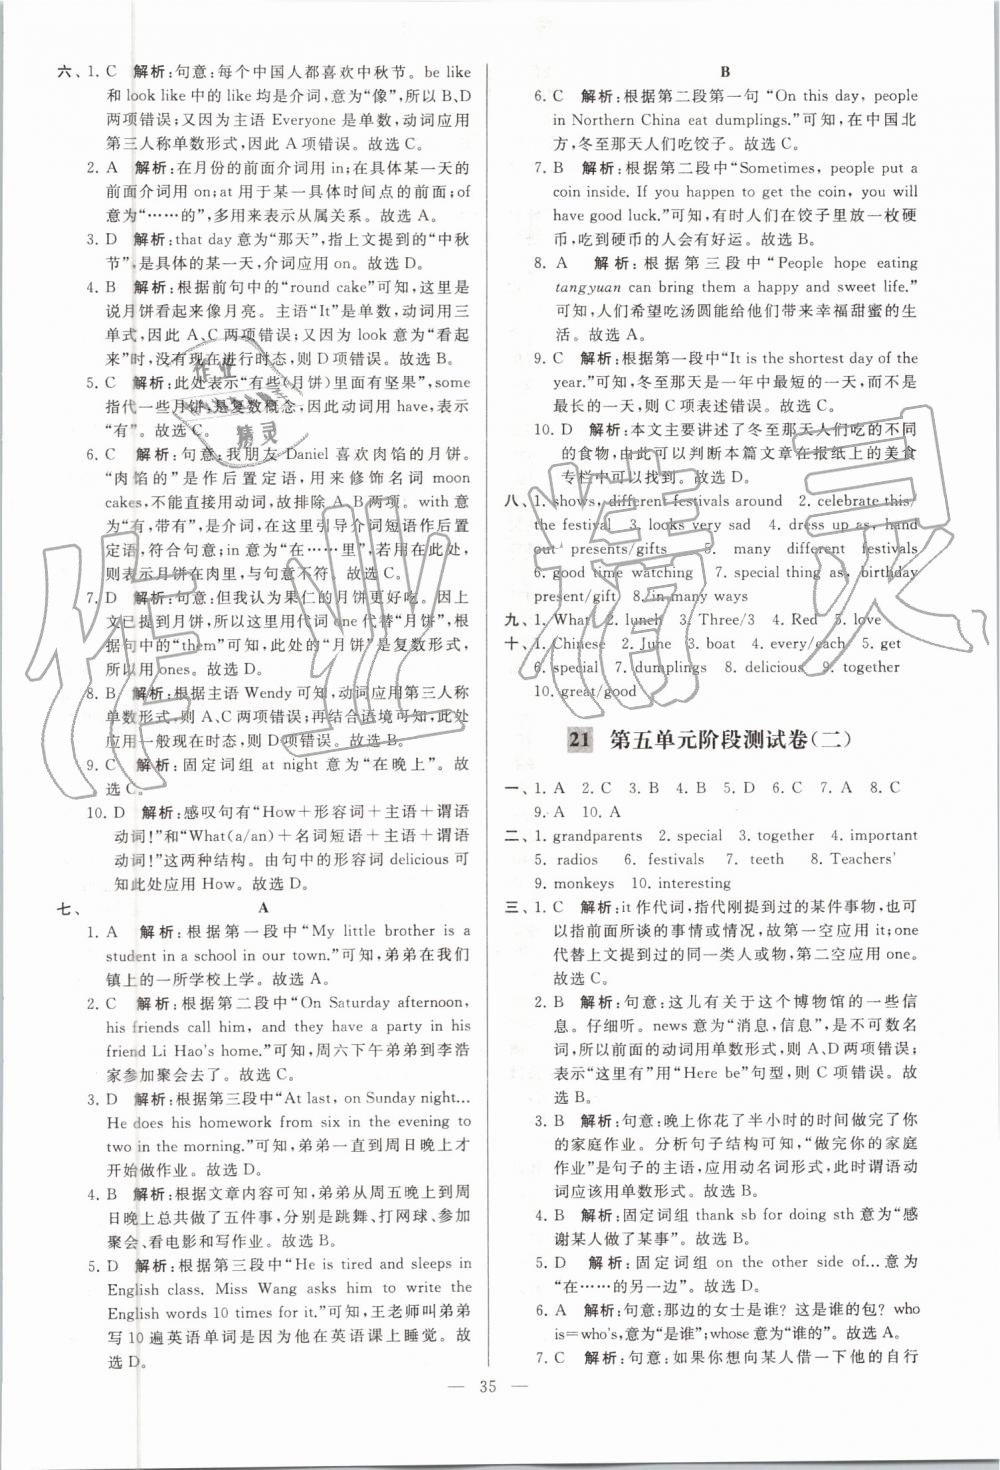 六、1. C　解析:句意:每个中国人都喜欢中秋节。be like
和 look like 中的 like 均是介词,意为“像”,所以 B、D
两项错误;又因为主语 Everyone 是单数,动词应用
第三人称单数形式,因此 A 项错误。故选 C。
2. A　解析:在月份的前面介词用 in;在具体某一天的
前面介词用 on;at 用于某一具体时间点的前面;of
意为“……的”,多用来表示从属关系。故选 A。
3. D　解析:that day 意为“那天”,指上文提到的“中秋
节”,是具体的某一天,介词应用 on。故选 D。
4. B　解析:根据前句中的“round cake”可知,这里是
说月饼看起来像月亮。主语“It”是单数,动词用三
单式,因此 A、C 两项错误;又因为 look 意为“看起
来”时,没有现在进行时态,则 D 项错误。故选 B。
5. C　解析:此处表示“有些(月饼)里面有坚果”,some
指代一些月饼,是复数概念,因此动词用 have,表示
“有”。故选 C。
6. C　解析:句意:我朋友 Daniel 喜欢肉馅的月饼。
“肉馅的”是作后置定语,用来修饰名词 moon
cakes,不能直接用动词,故排除 A、B 两项。with 意
为“有,带有”,是介词,在这里引导介词短语作后置
定语,符合句意;in 意为“在……里”,若用在此处,
则表示月饼在肉里,与句意不符。故选 C。
7. D　解析:句意:但我认为果仁的月饼更好吃。上
文已提到月饼,所以这里用代词 one 代替“月饼”,根
据句中的“them”可知,此处的“月饼”是复数形式,
所以用 ones。故选 D。
8. B　解析:根据主语 Wendy 可知,动词应用第三人称
单数形式,A、C 两项错误;再结合语境可知,此处
应用一般现在时态,则 D 项错误。故选 B。
9. C　解析:固定词组 at night 意为“在晚上”。故
选 C。
10. D　解析:感叹句有“How+形容词+主语+谓语
动词!”和“What(a/an)+名词短语+主语+谓语
动词!”这两种结构。由句中的形容词 delicious 可
知此处应用 How。故选 D。
七、　A
1. A　解析:根据第一段中“My little brother is a
student in a school in our town.”可知,弟弟在我们
镇上的一所学校上学。故选 A。
2. C　解析:根据第二段中“On Saturday afternoon,
his friends call him, and they have a party in his
friend Li Hao's home.”可知,周六下午弟弟到李浩
家参加聚会去了。故选 C。
3. D　解析:根据第三段中“At last, on Sunday night...
He does his homework from six in the evening to
two in the morning.”可知,弟弟一直到周日晚上才
开始做作业。故选 D。
4. B　解析:根据文章内容可知,弟弟从周五晚上到周
日晚上总共做了五件事,分别是跳舞、打网球、参加
聚会、看电影和写作业。故选 B。
5. D　解析:根据第三段中“He is tired and sleeps in
English class. Miss Wang asks him to write the
English words 10 times for it.”可知,王老师叫弟弟
写 10 遍英语单词是因为他在英语课上睡觉。故
选 D。
B
6. C　解析:根据第二段第一句“On this day, people
in Northern China eat dumplings.”可知,在中国北
方,冬至那天人们吃饺子。故选 C。
7. B　解析:根据第二段中“Sometimes, people put a
coin inside. If you happen to get the coin, you will
have good luck.”可知,有时人们在饺子里放一枚硬
币,吃到硬币的人会有好运。故选 B。
8. A　解析:根据第三段中“People hope eating
tangyuan can bring them a happy and sweet life.”
可知,人们希望吃汤圆能给他们带来幸福甜蜜的生
活。故选 A。
9. C　解析:根据第一段中“It is the shortest day of the
year.”可知,冬至那天是一年中最短的一天,而不是
最长的一天,则 C 项表述错误。故选 C。
10. D　解析:本文主要讲述了冬至那天人们吃的不同
的食物,由此可以判断本篇文章在报纸上的美食
专栏中可以找到。故选 D。
八、1. shows, different festivals around　2. celebrate this/
the festival　3. looks very sad　4. dress up as, hand
out presents/gifts　5. many different festivals
6. good time watching　7. special thing as, birthday
present/gift　8. in many ways
九、1. What　2. lunch　3. Three/3　4. Red　5. love
十、1. Chinese　2. June　3. boat　4. every/each　5. get
6. special　7. dumplings　8. delicious　9. together
10. great/good
21　第五单元阶段测试卷(二)
一、1. A　2. C　3. B　4. A　5. D　6. C　7. A　8. C
9. A　10. A
二、1. grandparents　2. special　3. together　4. important
5. radios　6. festivals　7. teeth　8. Teachers'
9. monkeys　10. interesting
三、1. C　解析:it 作代词,指代刚提到过的某件事物,也可
以指前面所谈的事情或情况,故第一空应用 it;one
代替上文提到过的同一类人或物,第二空应用 one。
故选 C。
2. B　解析:句意:这儿有关于这个博物馆的一些信
息。仔细听。news 意为“消息,信息”,是不可数名
词,所以前面的动词用单数形式,A、D 两项错误;
表示“这里有”用“Here be”句型,则 C 项错误。故
选 B。
3. B　解析:句意:晚上你花了半小时的时间做完了你
的家庭作业。分析句子结构可知,“做完你的家庭
作业”是句子的主语,应用动名词形式,此时谓语动
词应该用单数形式。故选 B。
4. B　解析:固定词组 thank sb for doing sth 意为“感
谢某人做了某事”。故选 B。
5. D　解析:固定词组 on the other side of... 意为
“在……的另一边”。故选 D。
6. A　解析:句意:那边的女士是谁? 这是谁的包? who
is=who's,意为“是谁”;whose 意为“谁的”。故选 A。
7. C　解析:句意:如果你想向某人借一件他的自行
— 35 —
作业
精灵
作业精灵